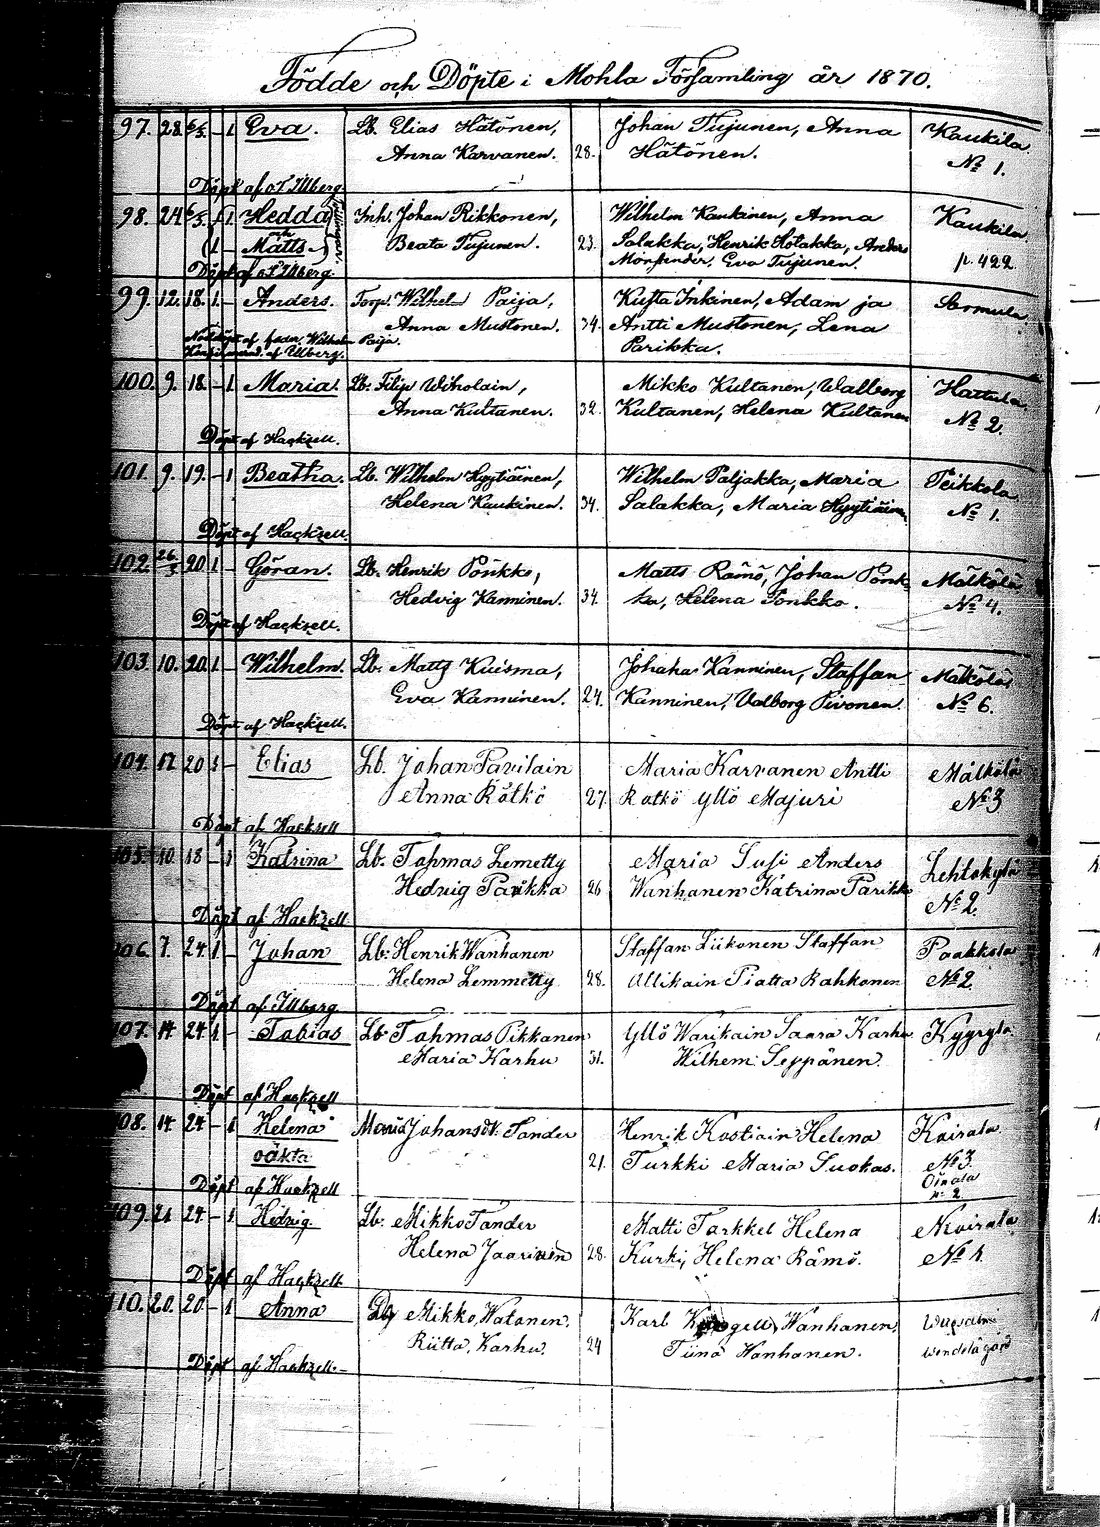 Födde och Döpte i Mohla Församling år 1870.
97. 28. 6/3. – 1 Eva. Lb. Elias Hätönen, Johan Tujunen, Anna Kaukila
Anna Karvanen. 28. Hätönen. № 1.
Döpt af Illberg
98. 24 6/3. 1 Hedda Inh. Johan Rikkonen, Wilhelm Kaukinen, Anna Kaukila
och
1 – Matts Beata Tujunen. 23. Salakka, Henrik Hotakka, Anders p. 422.
Döpt af Illberg. Eva Tujunen.
99. 12. 18. 1. – Anders. Torp. Wilhelm Paija, Kusta Inkinen, Adam ja Sormula.
Anna Mustonen. 34. Antti Mustonen, Lena
Nöddöpt af fader Wilhelm Paija. Parikka.
af Illberg.
100. 9. 18. – 1. Maria. Lb. Filip Wiholain, Mikko Kultanen, Walborg Hattula
Anna Kultanen. 32. Kultanen, Helena Kultanen № 2.
Döpt af Hackzell.
101. 9. 19. – 1 Beatha. Lb. Wilhelm Hyytiäinen, Wilhelm Paljakka, Maria Peikkola
Helena Kaukinen. 34. Salakka, Maria Hyytiäinen № 1.
Döpt af Hackzell.
102. 26/3 20 1 – Göran. Lb. Henrik Ponkko, Matts Rämö, Johan Ponk- Mälkölä
Hedvig Kanninen. 34. ko, Helena Ponkko. № 4.
Döpt af Hackzell.
103. 10. 20. 1 – Wilhelm. Lb. Matts Kuisma, Johana Kanninen, Staffan Mälkölä
Eva Kanninen. 24. Kanninen, Valborg Pivonen. № 6.
Döpt af Hackzell.
104. 17 20 1 – Elias Lb. Johan Pavilain Maria Karvanen Antti Mälkölä
Anna Rätkö 27. Ratkö Yllö Majuri № 3
Döpt af Hackzell
105. 10. 18 – 1 Katrina Lb. Tahmas Lemetty Maria Susi Anders Lehtokylä
Hedvig Parikka 26 Wanhanen Katrina Parikka № 2.
Döpt af Hackzell
106. 7. 24. 1 – Johan Lb. Henrik Wanhanen Staffan Liikonen Staffan Paakkola
Helena Lemmetty 28. Ullikain Piatta Rahkonen № 2.
Döpt af Illberg
107. 14 24 1 – Tobias Lb. Tahmas Pikkanen Yllö Warikain Saara Karhu Kyyrylä
Maria Karhu 31. Wilhem Seppänen.
Döpt af Hackzell
108. 14 24 – 1 Helena Maria Johansdt. Tander Henrik Kostiain Helena Kairala
oäkta 21. Turkki Maria Suokas. № 3.
Oinala
p. 2
Döpt af Hackzell
109. 21 24 – 1 Hedvig. Lb. Mikko Tander Matti Tarkkel Helena Kairala
Helena Jaarinen 28. Kurki, Helena Rämö. № 4.
Döpt af Hackzell
110. 20. 20 – 1 Anna Mikko Hatonen. Karl Wanhanen,
Riitta Karhu. 24 Tiina Wanhanen. gård
Döpt af Hackzell.